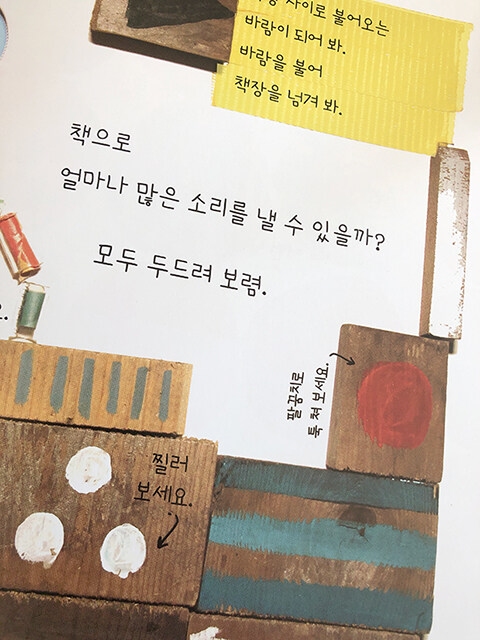 사이로 불어오는
바람이 되어 봐.
바람을 불어
책장을 넘겨 봐.
책으로
얼마나 많은 소리를 낼 수 있을까?
모두 두드려 보렴.
팔꿈치로
툭 쳐 보세요.
찔러
보세요.